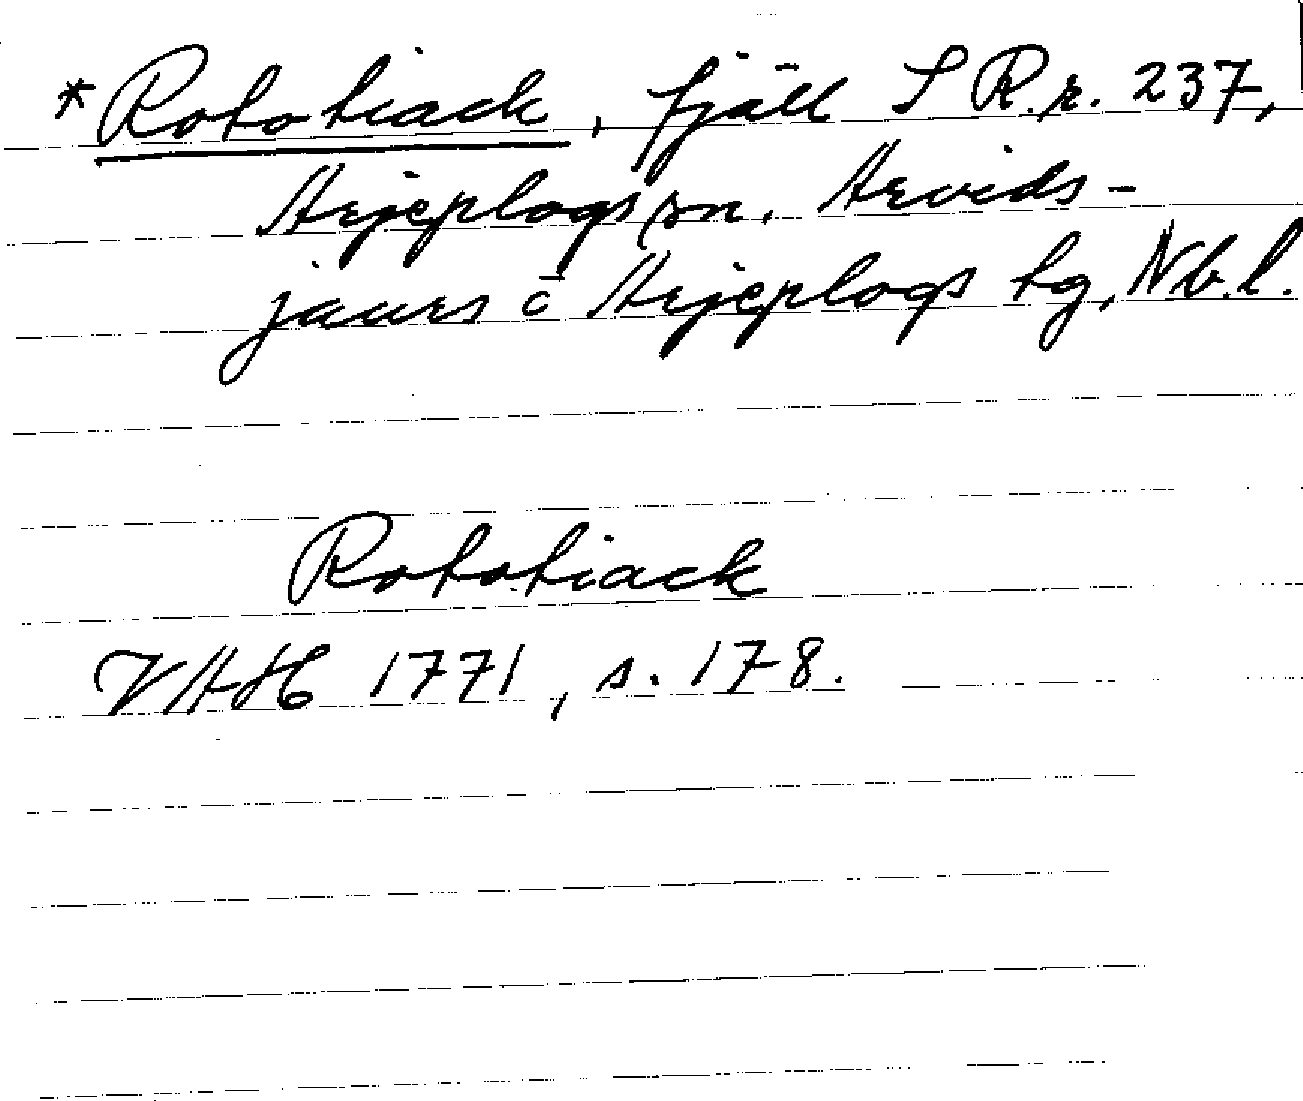 *Rototiack, fjäll S R.r. 237,
Arjeplogs sn. Arvids-
jaurs o Arjeplogs tg, Nb.l.
Rototiack
VAH 1771, s. 178.